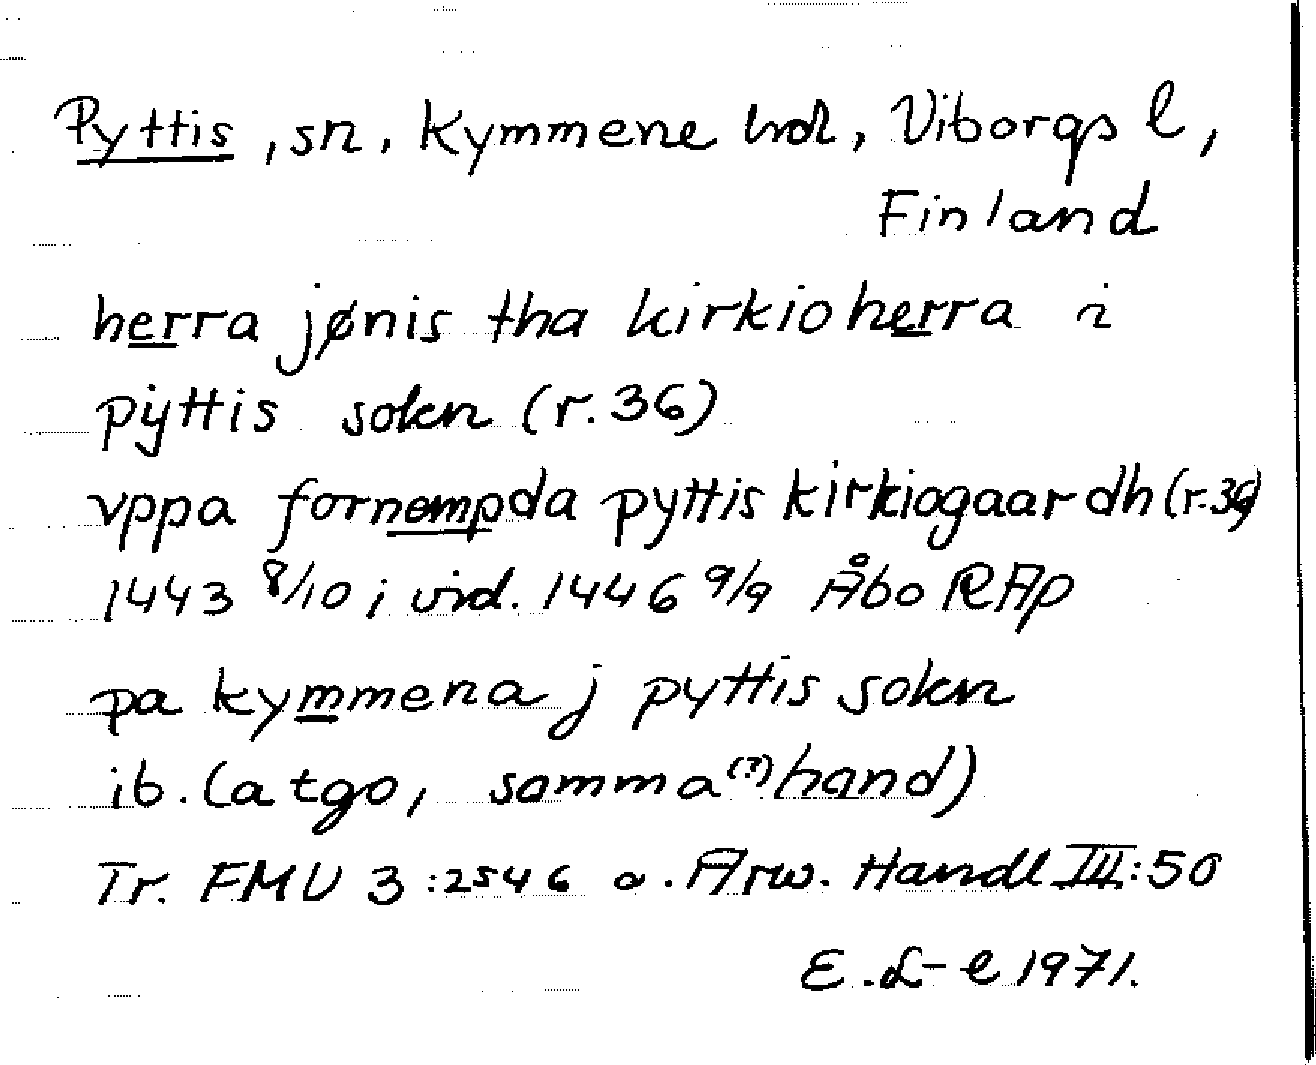 Pyttis, sn, Kymmene hd, Viborgs l,
Finland
herra jønis tha kirkioherra i
pÿttis sokn (r. 36)
vppa fornempda pyttis kirkiogaardh (r. 39)
1443 8/10 i vid. 1446 9/9 Åbo RAp
pa kymmena j pyttis sokn
ib. (a tgo, samma (?) hand)
Tr. FMU 3:2546 o. Arw. Handl III:50
E.L-e 1971.